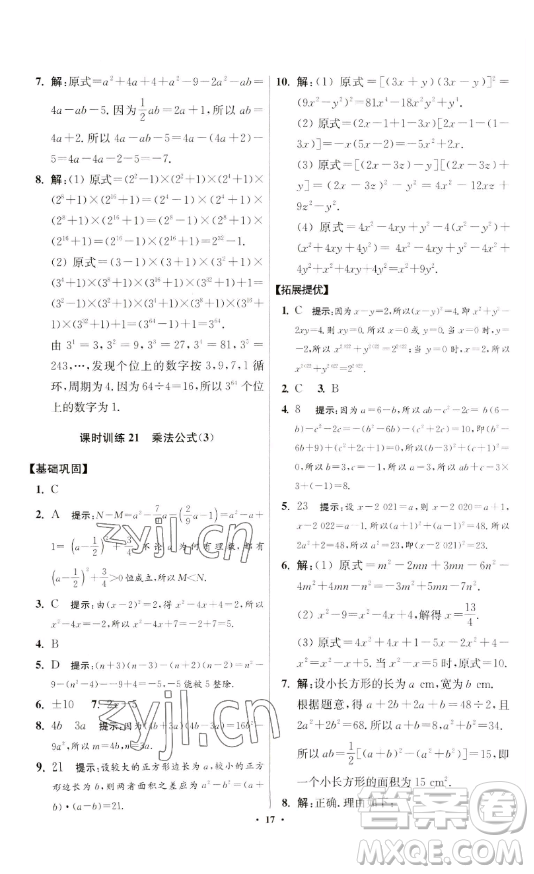 7. 解:原式=a²+4a+4+a²-9-2a²-ab=
4a-ab-5. 因为½ab=2a+1,所以 ab=
4a+2. 所以 4a-ab-5=4a-(4a+2)-
5=4a-4a-2-5=-7.
8. 解:(1) 原式=(2²-1)×(2²+1)×(2⁴+1)×
(2⁸+1)×(2¹⁶+1)=(2⁴-1)×(2⁴+1)×
(2⁸+1)×(2¹⁶+1)=(2⁸-1)×(2⁸+1)×
(2¹⁶+1)=(2¹⁶-1)×(2¹⁶+1)=2³²-1.
(2) 原式=(3-1)×(3+1)×(3²+1)×
(3⁴+1)×(3⁸+1)×(3¹⁶+1)×(3³²+1)+
1=(3²-1)×(3²+1)×(3⁴+1)×(3⁸+1)×
(3¹⁶+1)×(3³²+1)+1=(3⁶⁴-1)+1=
3⁶⁴.
由 3¹=3,3²=9,3³=27,3⁴=81,3⁵=
243,…,发现个位上的数字按 3,9,7,1 循
环,周期为 4. 因为 64÷4=16,所以 3⁶⁴ 个位
上的数字为 1.
课时训练 21 乘法公式(3)
【基础巩固】
1. C
2. A 提示:N-M=a²-7/9a-(2/9a-1)=a²-a+
1=(a-1/2)²+3/4. 不论 a 为何有理数,都有
(a-1/2)²+3/4>0 恒成立,所以 M<N.
3. C 提示:由(x-2)²=2,得 x²-4x+4=2,所以
x²-4x=-2. 所以 x²-4x+7=-2+7=5.
4. B
5. D 提示:(n+3)(n-3)-(n+2)(n-2)=n²-
9-(n²-4)=n²-9-n²+4=-5,一定能被 5 整除.
6. ±10 7. 2x-5
8. 4b 3a 提示:因为(4b+3a)(4b-3a)=16b²-
9a²,所以 m=4b,n=3a.
9. 21 提示:设较大的正方形边长为 a,较小的正方
形边长为 b,则两者面积之差为 a²-b²=(a+
b)·(a-b)=21.
10. 解:(1) 原式=[(3x+y)(3x-y)]²=
(9x²-y²)²=81x⁴-18x²y²+y⁴.
(2) 原式=(2x-1+1-3x)[2x-1-(1-
3x)]=-x(5x-2)=-5x²+2x.
(3) 原式=[(2x-3z)-y][(2x-3z)+
y]=(2x-3z)²-y²=4x²-12xz+
9z²-y².
(4) 原式=4x²-4xy+y²-4(x²-y²)+
(x²+4xy+4y²)=4x²-4xy+y²-4x²+
4y²+x²+4xy+4y²=x²+9y².
【拓展提优】
1. C 提示:因为 x-y=2,所以(x-y)²=4,即 x²+y²-
2xy=4,则 xy=0. 所以 x=0 或 y=0. 当 x=0 时,
2. C 3. B
4. 8 提示:因为 a=6-b,所以 ab-c²=b(6-
b)-c²=-b²+6b-c²=9,所以 b²-6b+9+
c²=0,即(b-3)²+c²=0. 所以 b=3,c=0. 所以
a=6-b=3. 所以 a+b-c=3×
3+(-1)=8.
5. 23 提示:设 x-2 021=a,则 x-2 020=a+1,
x-2 022=a-1. 所以(a+1)²+(a-1)²=48. 所以
2a²+2=48. 所以 a²=23. 即(x-2 021)²=23.
6. 解:(1) 原式=m²-2mn+3mn-6n²=
m²+mn-6n².
(2) x²-9=x²-4x+4,解得 x=13/4.
(3) 原式=4x²+4x+1-5x-5x²+4+
x²-2x+1=-3x+6.
7. 解:设小长方形的长为 a cm,宽为 b cm.
根据题意,得 4a+4b+4a+4b=48÷2,且
2a²+2b²=68. 所以 a+b=8,a²+b²=34.
所以 ab=½[(a+b)²-(a²+b²)]=15,即
一个小长方形的面积为 15 cm².
8. 解:正确. 理由如下:
• 17 •
zyjl.cn
zyjl.cn
答案圈
MXQE.COM